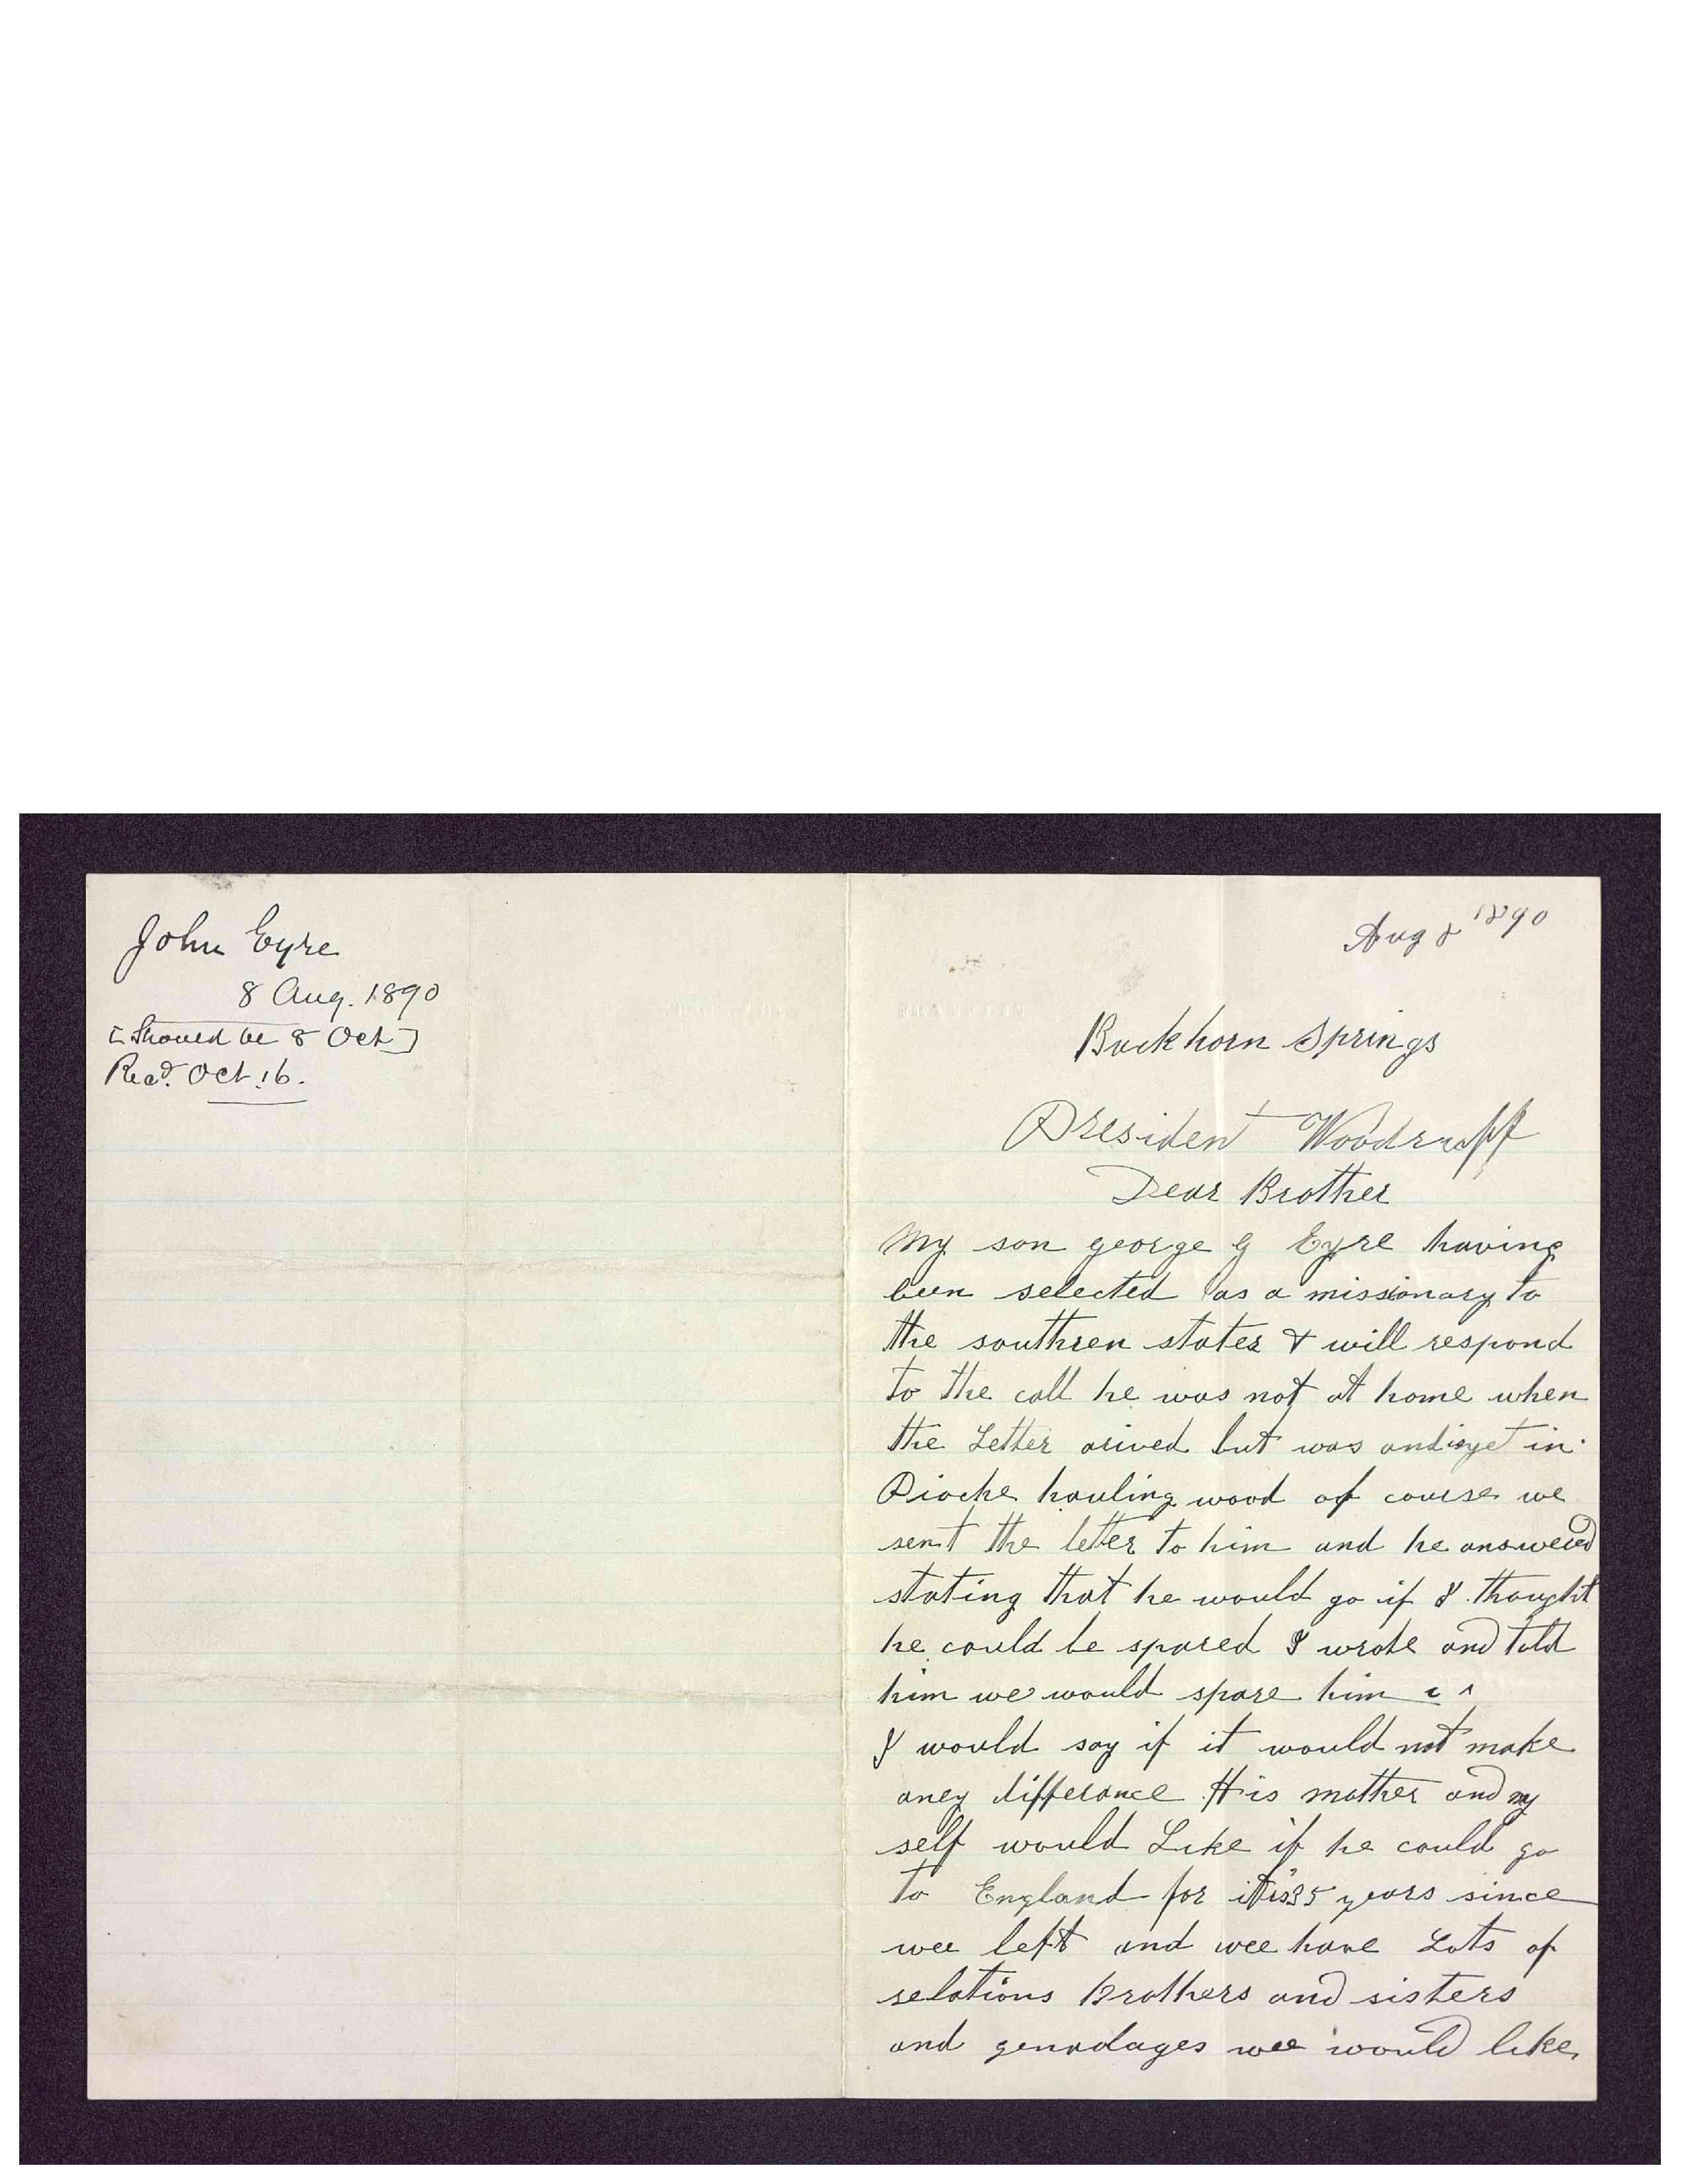 John Eyre
8 Aug. 1890
[Should be 8 Oct]
Recd. Oct. 16.
Aug 8 1890
Buckhorn Springs
President Woodruff
Dear Brother
My son george G Eyre having
been selected as a missionary to
the southren states & will respond
to the call he was not at home when
the Letter arived but was and is yet in
Pioche hauling wood of course we
sent the letter to him and he answered
stating that he would go if I thought
he could be spared I wrote and told
him we would spare him
I would say if it would not make
aney differance His mother and my
self would Like if he could go
to England for it is 35 years since
wee left and wee have Lots of
relations Brothers and sisters
and genadages wee would like